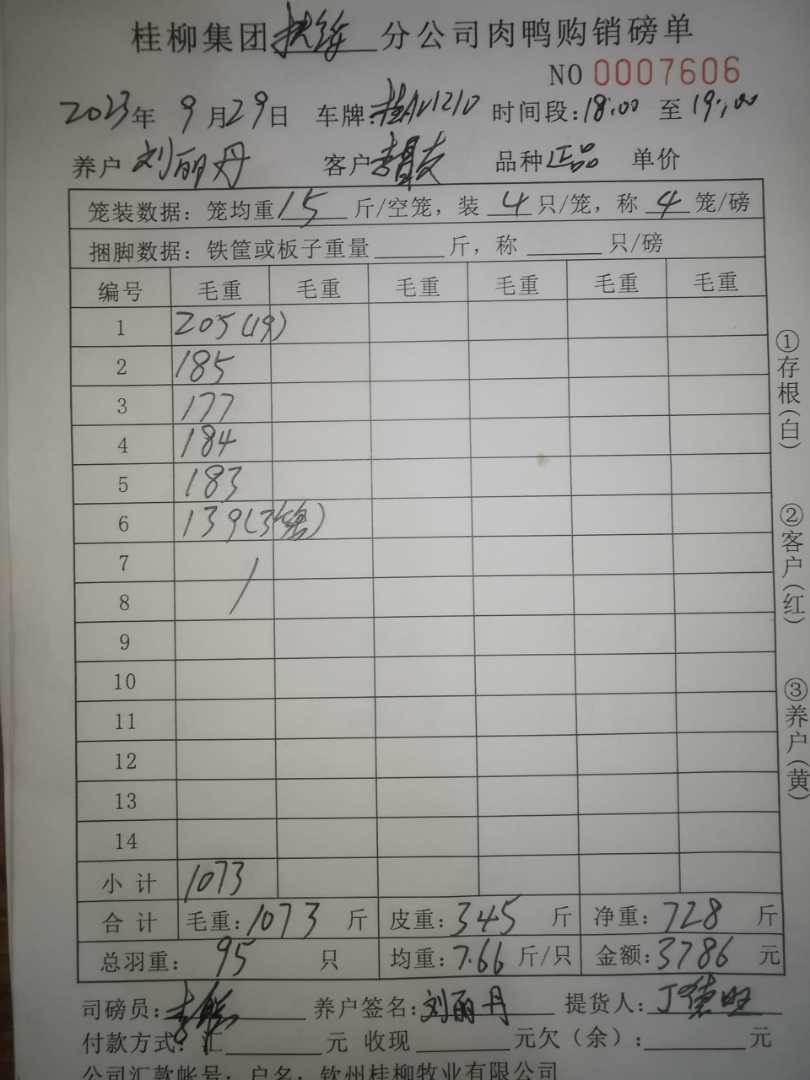 桂柳集团 分公司肉鸭购销磅单
NO 0007606
2023年 9月29日 车牌: 时间段:18:00 至 19:00
养户 刘丽丹 客户 品种 正品 单价
笼装数据: 笼均重 15 斤/空笼, 装 4 只/笼, 称 4 笼/磅
捆脚数据: 铁筐或板子重量 斤, 称 只/磅
编号 毛重 毛重 毛重 毛重 毛重 毛重
1 205(19)
2 185
3 177
4 184
5 183
6 139(3笼)
7
8
9
10
11
12
13
14
小计 1073
合计 毛重:1073 斤 皮重:345 斤 净重:728 斤
总羽重: 95 只 均重:7.66 斤/只 金额:3786 元
司磅员: 养户签名:刘丽丹 提货人:丁德旺
付款方式: 汇 元 收现 元欠(余): 元
公司汇款帐号: 户名: 钦州桂柳牧业有限公司
①存根(白)
②客户(红)
③养户(黄)